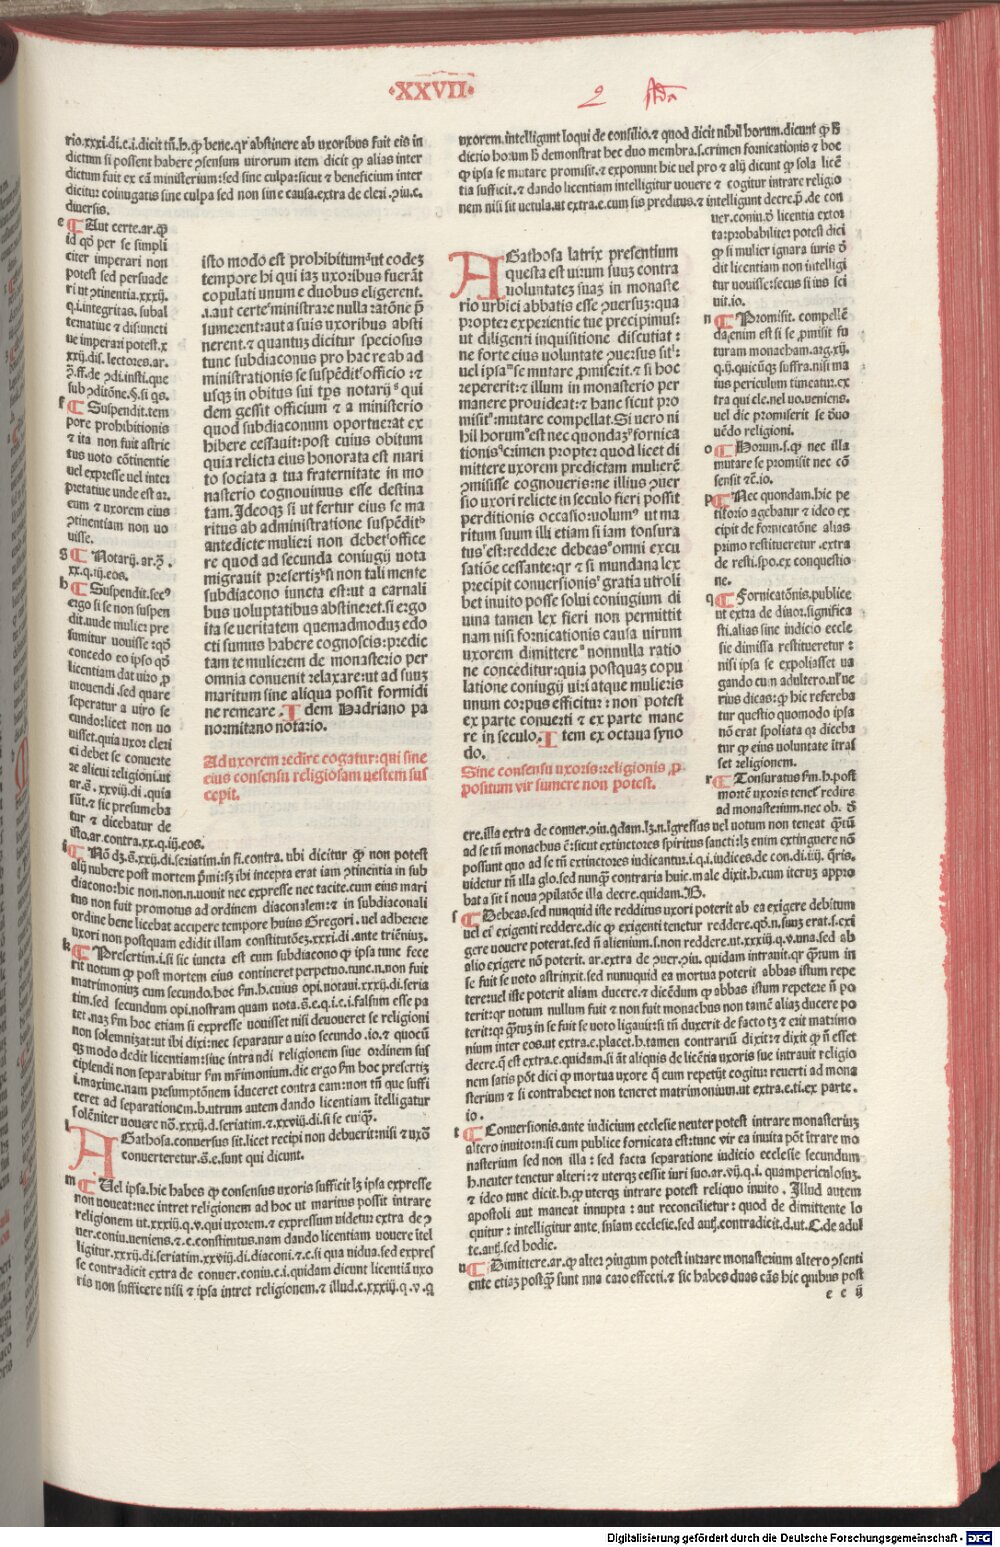 ·XXVII·
rio.xxxi.di.c.i.dicit tñ.h.ꝙ bene.qr abstinere ab uxoribus fuit eis in
dictum si possent habere ꝯsensum uirorum item dicit ꝙ alias inter
dictum fuit ex cã ministerium:sed sine culpa:sicut ⁊ beneficium inter
dicitur coniugatis sine culpa sed non sine causa.extra de cleri.ꝯiu.c.
diuersis.
e ¶ Aut certe.ar.ꝙ
id qđ per se simpli
citer imperari non
potest sed persuade
ri ut ꝯtinentia.xxxij.
q.i.integritas. subal
ternatiue ⁊ disiuncti
ue imperari potest.x
xxij.dis. lectores.ar.
f ¶ Suspendit.tem
pore prohibitionis
⁊ ita non fuit astric
tus uoto cõtinentie
uel expresse uel inter
pretatiue unde est ar.
cum ⁊ uxorem eius
ꝯtinentiam non uo
uisse.
g ¶ Notarij.ar.
xx.q.iij.eos.
h ¶ Suspendit.
ergo si se non suspen
dit.nude mulier pre
sumitur uouisse:qđ
concedo eo ipso qđ
licentiam dat uiro ꝓ
mouendi.sed quare
seperatur a uiro se
cundo:licet non uo
uisset.quia uxor cleri
ci debet se conuerte
re alicui religioni.ut
xxviij.di.quia
sũt.⁊ sic presumeba
tur ⁊ dicebatur de
isto.ar.contra.xx.q.iij.eos.
isto modo est prohibitum ut codeȝ
tempore hi qui iaȝ uxoribus fuerãt
copulati unum e duobus eligerent.
i.aut certe ministrare nulla ratõne p̃
sumerent:aut a suis uxoribus absti
nerent.⁊ quantuȝ dicitur speciosus
tunc subdiaconus pro hac re ab ad
ministrationis se suspẽdit officio:⁊
usqȝ in obitus sui tps notarij qui
dem gessit officium ⁊ a ministerio
quod subdiaconum oportuerat ex
hibere cessauit:post cuius obitum
quia relicta eius honorata est mari
to sociata a tua fraternitate in mo
nasterio cognouimus esse destina
tam.Ideoqȝ si ut fertur eius se ma
ritus ab administratione suspẽdit
antedicte mulieri non debet office
re quod ad secunda coniugij uota
migrauit presertiȝ si non tali mente
subdiacono iuncta est:ut a carnali
bus uoluptatibus abstineret.si ergo
ita se ueritatem quemadmoduȝ edo
cti sumus habere cognoscis:predic
tam te mulierem de monasterio per
omnia conuenit relaxare:ut ad suuȝ
maritum sine aliqua possit formidi
ne remeare. Idem Hadriano pa
normitano notario.
Ad uxorem redire cogatur:qui sine
eius consensu religiosam uestem sus
cepit.
i ¶ Nõ dȝ.§.xxij.di.seriatim.in fi.contra. ubi dicitur ꝙ non potest
alij nubere post mortem p̃mi:sȝ ibi incepta erat iam ꝯtinentia in sub
diacono:hic non.non.n.uouit nec expresse nec tacite.cum eius mari
tus non fuit promotus ad ordinem diaconalem:⁊ in subdiaconali
ordine bene licebat accipere tempore huius Gregori. uel adherere
uxori non postquam edidit illam constitutõeȝ.xxxi.di.ante triẽnium.
k ¶ Presertim.i.si sic iuncta est cum subdiacono ꝙ ipsa tunc fece
rit uotum ꝙ post mortem eius contineret perpetuo.tunc.n.non fuit
matrimoniuȝ cum secundo.hoc fm.h.cuius opi.notaui.xxxij.di.seria
tim.sed secundum opi.nostram quam nota.§.e.q.i.c.i.falsum esse pa
tet.naȝ fm hoc etiam si expresse uouisset nisi deuoueret se religioni
non solemnizat:ut ibi dixi:nec separatur a uiro secundo.io.⁊ quocũ
qȝ modo dedit licentiam:siue intrandi religionem siue ordinem sus
cipiendi non separabitur fm mr̃imonium.dic ergo fm hoc presertiȝ
i.maxime.nam presumptõnem iduceret contra eam:non tñ que suffi
ceret ad separationem.h.utrum autem dando licentiam itelligatur
solẽniter uouere nõ.xxxij.d.seriatim.⁊.xxviij.di.si se cuiꝙ.
l Agathosa.conuersus sit.licet recipi non debuerit:nisi ⁊ uxõ
conuerteretur.§.e.sunt qui dicunt.
m ¶ Uel ipsa.hic habes ꝙ consensus uxoris sufficit lȝ ipsa expresse
non uoueat:nec intret religionem ad hoc ut maritus possit intrare
religionem ut.xxxiij.q.v.qui uxorem.⁊ expressum uidetur extra de ꝯ
uer.coniu.ueniens.⁊ c.constitutus.nam dando licentiam uouere itel
ligitur.xxxij.di.seriatim.xxviij.di.diaconi.⁊ c.si qua uidua.sed expres
se contradicit extra de conuer.coniu.c.i.quidam dicunt licentiã uxo
ris non sufficere nisi ⁊ ipsa intret religionem.⁊ illud.c.xxxiij.q.v.q
uxorem.intelligunt loqui de consilio.⁊ quod dicit nihil horum.dicunt ꝙ
dictio horum demonstrat hec duo membra.s.crimen fornicationis ⁊ hoc
ꝙ ipsa se mutare promisit.⁊ exponunt hic uel pro ⁊ alij dicunt ꝙ sola licẽ
tia sufficit.⁊ dando licentiam intelligitur uouere ⁊ cogitur intrare religio
nem nisi sit uetula.ut extra.e.cum sis preditus.⁊ intelligunt decre.p̃.de con
uer.coniu.ď licentia extor
ta:probabiliter potest dici
ꝙ si mulier ignara iuris ď
dit licentiam non intelligi
tur uouisse:secus si ius sci
uit.io.
Agathosa latrix presentium
questa est uirum suuȝ contra
uoluntateȝ suaȝ in monaste
rio urbici abbatis esse ꝯuersuȝ:qua
propter experientie tue precipimus:
ut diligenti inquisitione discutiat:
ne forte eius uoluntate ꝯuersus sit:
uel ipsa se mutare ꝓmiserit.⁊ si hoc
repererit:⁊ illum in monasterio per
manere prouideat:⁊ hanc sicut pro
misit:mutare compellat.Si uero ni
hil horum est nec quondaȝ fornica
tionis crimen propter quod licet di
mittere uxorem predictam mulierẽ
ꝯmisisse cognoueris:ne illius ꝯuer
sio uxori relicte in seculo fieri possit
perditionis occasio:uolum ut ma
ritum suum illi etiam si iam tonsura
tus est:reddere debeas omni excu
satiõe cessante:qr ⁊ si mundana lex
precipit conuersionis gratia utroli
bet inuito posse solui coniugium di
uina tamen lex fieri non permittit
nam nisi fornicationis causa uirum
uxorem dimittere nonnulla ratio
ne conceditur:quia postquaȝ copu
latione coniugij uiri atque mulieris
unum corpus efficitur: non potest
ex parte conuerti ⁊ ex parte mane
re in seculo. Item ex octaua syno
do.
Sine consensu uxoris:religionis ꝓ
positum vir sumere non potest.
n ¶ Promisit. compellẽ
da.enim est si se ꝓmisit fu
turam monacham.arg.xij.
q.ij.quicũqȝ suffra.nisi ma
ius periculum timeatur.ex
tra qui cle.nel uo.ueniens.
uel die promiserit se ďuo
uẽdo religioni.
o ¶ Horum.s.ꝙ nec illa
mutare se promisit nec cõ
sensit ⁊c.io.
p ¶ Nec quondam.hic pe
titorio agebatur ⁊ ideo ex
cipit de fornicatõne alias
primo restitueretur.extra
de resti.spo.ex conquestio
ne.
q ¶ Fornicatõnis.publice
ut extra de diuor.significa
sti.alias sine indicio eccle
sie dimissa restitueretur:
nisi ipsa se expoliasset ua
gando cum adultero.ul ue
rius dicas:ꝙ hic refereba
tur questio quomodo ipsa
nõ erat spoliata qr diceba
tur ꝙ eius uoluntate itras
set religionem.
r ¶ Tonsuratus fm.h.post
mortẽ uxoris tenet redire
ad monasterium.nec ob.
ere.illa extra de conuer.ꝯiu.qdam.lȝ.n.igressus uel uotum non teneat ꝙtũ
ad se tñ monachus ẽ:sicut extinctores spiritus sancti:lȝ enim extinguere nõ
possunt quo ad se tñ extinctores iudicantur.i.q.i.iudices.de con.di.iiij.qris.
uidetur tñ illa glo.sed nunqȝ contraria huic.male dixit.h.cum iteruȝ appro
bat a sit i noua ꝯpilatõe illa decre.quidam.B.
s ¶ Debeas.sed nunquid iste redditus uxori poterit ab ea exigere debitum
uel ei exigenti reddere.dic ꝙ exigenti tenetur reddere.qđ.n.suuȝ erat.s.exi
gere uouere poterat.sed ñ alienium.s.non reddere.ut.xxxiij.q.v.una.sed ab
alio exigere nõ poterit. ar.extra de ꝯuer.ꝯiu. quidam intrauit.qr ꝙtum in
se fuit se uoto astrinxit.sed nunuquid ea mortua poterit abbas istum repe
tere:uel iste poterit aliam ducere.⁊ dicẽdum ꝙ abbas istum repetere ñ po
terit:qr uotum nullum fuit ⁊ non fuit monachus non tamẽ aliaȝ ducere po
terit:qr ꝙtuȝ in se fuit se uoto ligauit:si tñ duxerit de facto tȝ ⁊ erit matrimo
nium inter eos.ut extra.e.placet.h.tamen contrariũ dixit:⁊ dixit ꝙ ñ esset
decre.q̃ est extra.e.quidam.si añt aliquis de licẽtia uxoris sue intrauit religio
nem satis põt dici ꝙ mortua uxore q̃ eum repetijt cogitur reuerti ad mona
sterium ⁊ si contraheret non teneret matrimonium.ut extra.e.ti.ex parte.
io.
t ¶ Conuersionis.ante iudicium ecclesie neuter potest intrare monasteriuȝ
altero inuito:nisi cum publice fornicata est:tunc vir ea inuita põt itrare mo
nasterium sed non illa: sed facta separatione iudicio ecclesie secundum
h.neuter tenetur alteri:⁊ uterqȝ cessit iuri suo.ar.vij.q.i.quampericulosuȝ.
⁊ ideo tunc dicit.h.ꝙ uterqȝ intrare potest reliquo inuito. Illud autem
apostoli aut maneat innupta: aut reconcilietur: quod de dimittente lo
quitur: intelligitur ante.sniam ecclesie.sed autȝ.contradicit.d.ut.C.de adul
te.autȝ.sed hodie.
u ¶ Dimittere.ar.ꝙ alter ꝯiugum potest intrare monasterium altero ꝯsenti
ente etiaȝ postꝙ sunt una caro effecti.⁊ sic habes duas cãs hic quibus post
e e ij
Digitalisierung gefördert durch die Deutsche Forschungsgemeinschaft - DFG